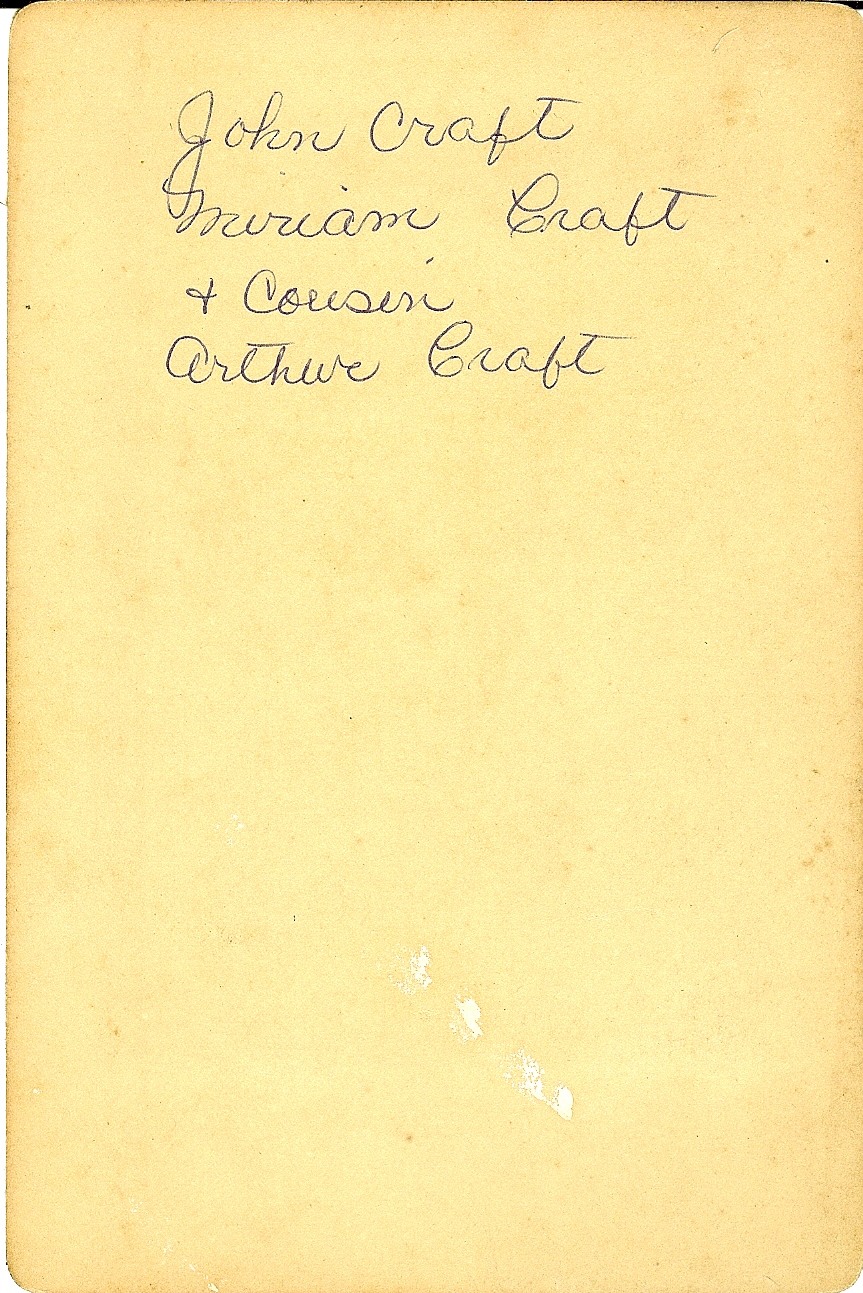 John Craft
Miriam Craft
+ Cousin
Arthur Craft